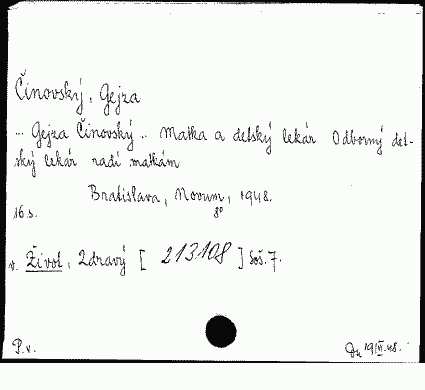 Činovský, Gejza
... Gejza Činovský .. Matka a detský lekár Odborný det-
ský lekár radí matkám
Bratislava, Novum, 1948.
16 s. 8°
v. Život, Zdravý [ 213108 ] Soš. 7.
P. v.